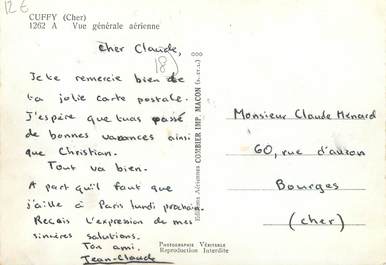 12€
CUFFY (Cher)
1262 A Vue générale aérienne
Cher Claude,
(18)
Je te remercie bien de
ta jolie carte postale.
J'espère que tu as passé
de bonnes vacances ainsi
que Christian.
Tout va bien.
A part qu'il faut que
j'aille à Paris lundi prochain.
Reçois l'expression de mes
sincères salutions.
Ton ami.
Jean-Claude
Editions Aériennes COMBIER IMP. MACON (S.-et-L.)
Photographie Véritable
Reproduction Interdite
Monsieur Claude Menard
60, rue d'auron
Bourges
(cher)